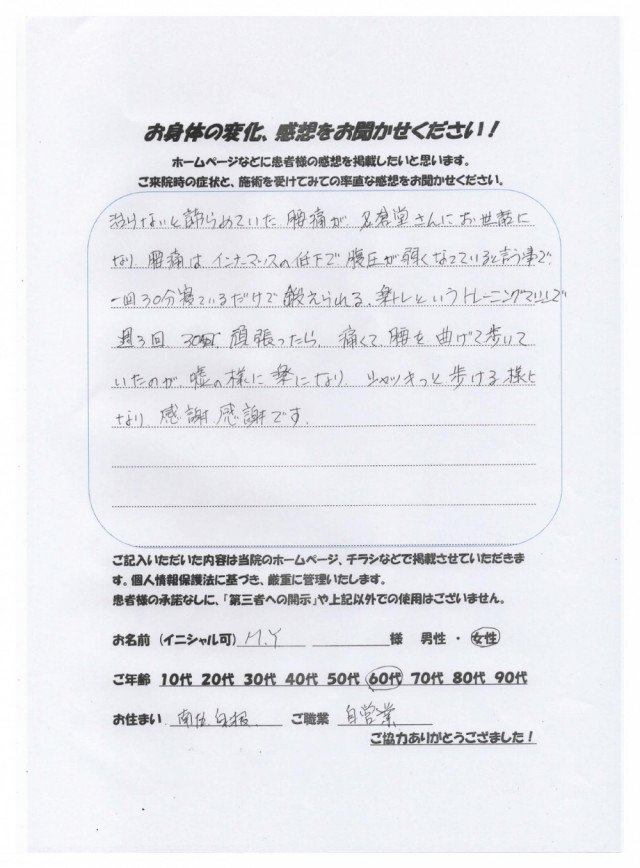 お身体の変化、感想をお聞かせください！
ホームページなどに患者様の感想を掲載したいと思います。
ご来院時の症状と、施術を受けてみての率直な感想をお聞かせください。
治らないと諦らめていた腰痛が、名倉堂さんにお世話に
なり、腰痛はインナーマッスルの低下で腹圧が弱くなっていると言う事で、
一回30分寝ているだけで鍛えられる、楽トレというトレーニングマシーンで
週3回、30分、頑張ったら、痛くて、腰を曲げて歩いて
いたのが、嘘の様に楽になり、シャッキっと歩ける様に
なり、感謝、感謝です。
ご記入いただいた内容は当院のホームページ、チラシなどで掲載させていただきま
す。個人情報保護法に基づき、厳重に管理いたします。
患者様の承諾なしに、「第三者への開示」や上記以外での使用はございません。
お名前（イニシャル可） M.Y 様 男性 ・ 女性
ご年齢 10代 20代 30代 40代 50代 60代 70代 80代 90代
お住まい ご職業 自営業
ご協力ありがとうござました！